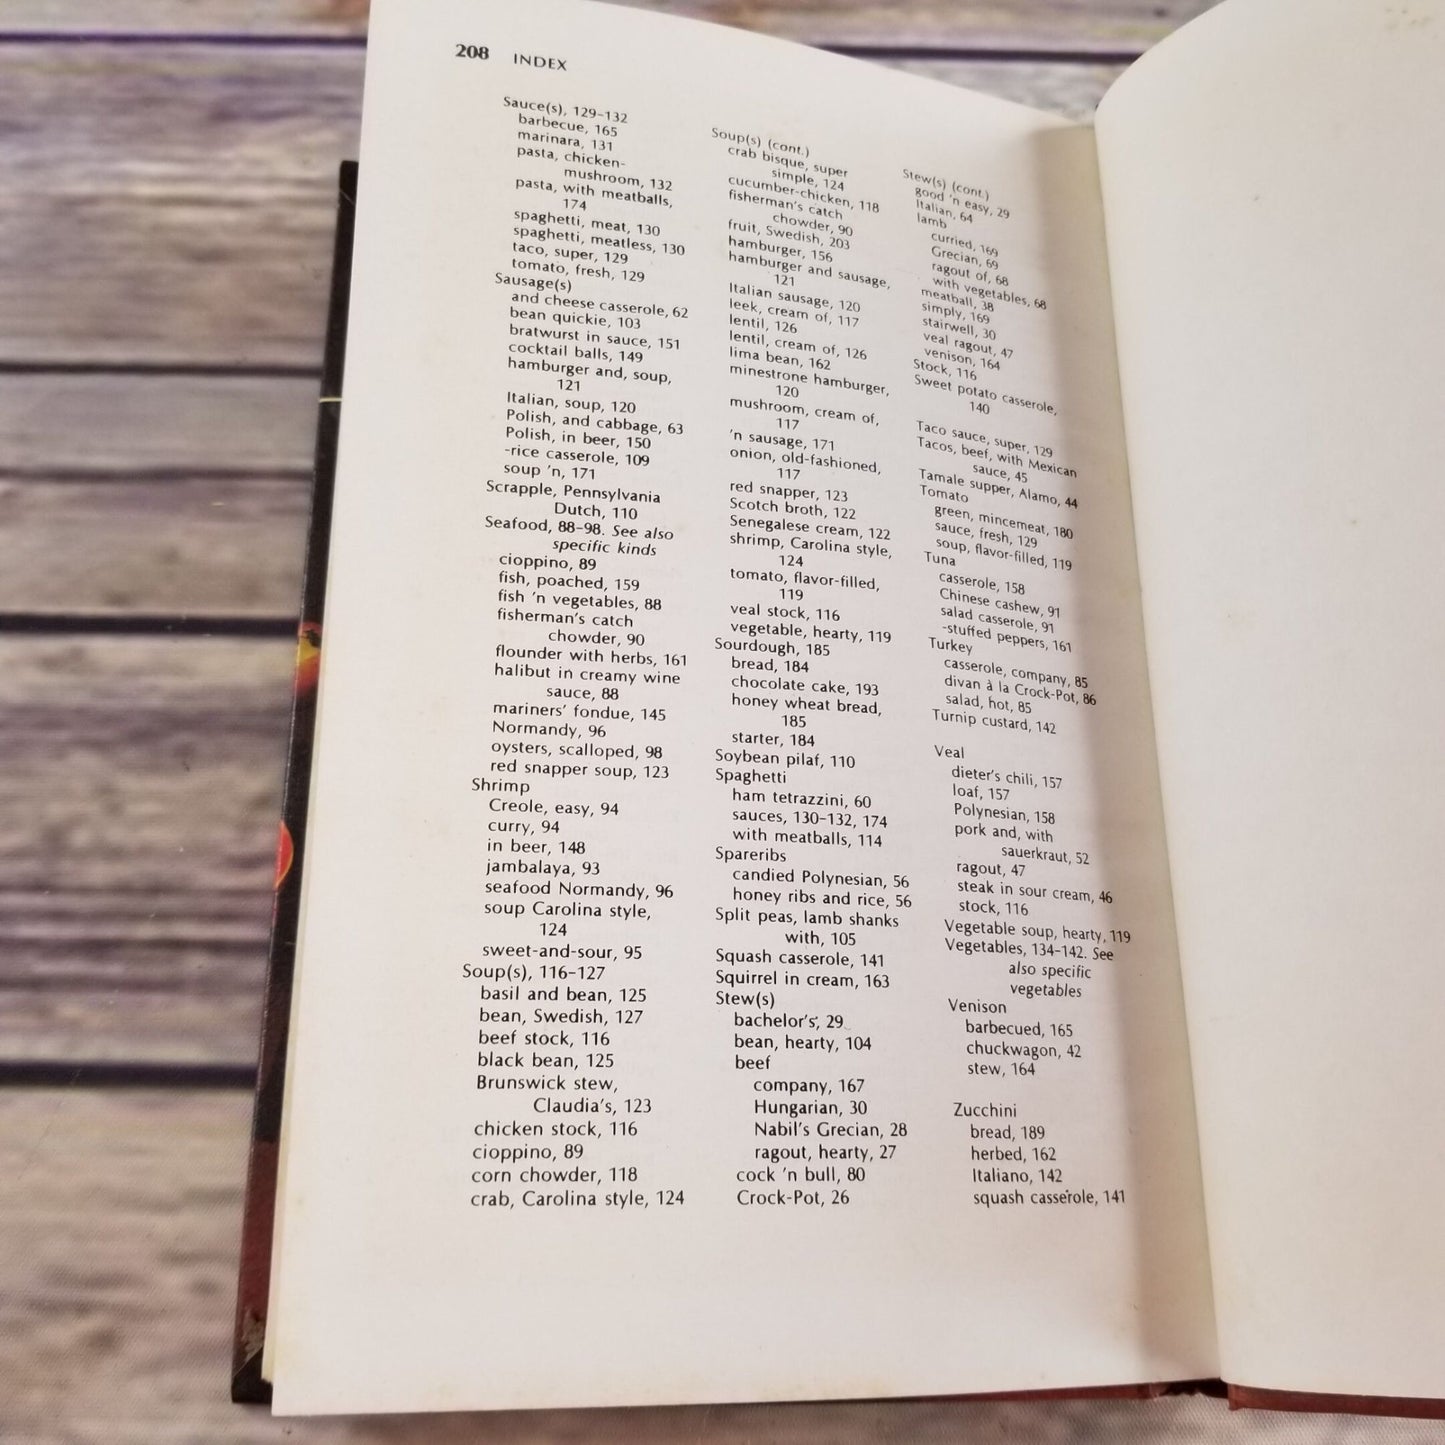 208 INDEX
Sauce(s), 129–132
barbecue, 165
marinara, 131
pasta, chicken-
mushroom, 132
pasta, with meatballs,
174
spaghetti, meat, 130
spaghetti, meatless, 130
taco, super, 129
tomato, fresh, 129
Sausage(s)
and cheese casserole, 62
bean quickie, 103
bratwurst in sauce, 151
cocktail balls, 149
hamburger and, soup,
121
Italian, soup, 120
Polish, and cabbage, 63
Polish, in beer, 150
-rice casserole, 109
soup 'n, 171
Scrapple, Pennsylvania
Dutch, 110
Seafood, 88–98. See also
specific kinds
cioppino, 89
fish, poached, 159
fish 'n vegetables, 88
fisherman's catch
chowder, 90
flounder with herbs, 161
halibut in creamy wine
sauce, 88
mariners' fondue, 145
Normandy, 96
oysters, scalloped, 98
red snapper soup, 123
Shrimp
Creole, easy, 94
curry, 94
in beer, 148
jambalaya, 93
seafood Normandy, 96
soup Carolina style,
124
sweet-and-sour, 95
Soup(s), 116–127
basil and bean, 125
bean, Swedish, 127
beef stock, 116
black bean, 125
Brunswick stew,
Claudia's, 123
chicken stock, 116
cioppino, 89
corn chowder, 118
crab, Carolina style, 124
Soup(s) (cont.)
crab bisque, super
simple, 124
cucumber-chicken, 118
fisherman's catch
chowder, 90
fruit, Swedish, 203
hamburger, 156
hamburger and sausage,
121
Italian sausage, 120
leek, cream of, 117
lentil, 126
lentil, cream of, 126
lima bean, 162
minestrone hamburger,
120
mushroom, cream of,
117
'n sausage, 171
onion, old-fashioned,
117
red snapper, 123
Scotch broth, 122
Senegalese cream, 122
shrimp, Carolina style,
124
tomato, flavor-filled,
119
veal stock, 116
vegetable, hearty, 119
Sourdough, 185
bread, 184
chocolate cake, 193
honey wheat bread,
185
starter, 184
Soybean pilaf, 110
Spaghetti
ham tetrazzini, 60
sauces, 130–132, 174
with meatballs, 114
Spareribs
candied Polynesian, 56
honey ribs and rice, 56
Split peas, lamb shanks
with, 105
Squash casserole, 141
Squirrel in cream, 163
Stew(s)
bachelor's, 29
bean, hearty, 104
beef
company, 167
Hungarian, 30
Nabil's Grecian, 28
ragout, hearty, 27
cock 'n bull, 80
Crock-Pot, 26
Stew(s) (cont.)
good 'n easy, 29
Italian, 64
lamb
curried, 169
Grecian, 69
ragout of, 68
with vegetables, 68
meatball, 38
simply, 169
stairwell, 30
veal ragout, 47
venison, 164
Stock, 116
Sweet potato casserole,
140
Taco sauce, super, 129
Tacos, beef, with Mexican
sauce, 45
Tamale supper, Alamo, 44
Tomato
green, mincemeat, 180
sauce, fresh, 129
soup, flavor-filled, 119
Tuna
casserole, 158
Chinese cashew, 91
salad casserole, 91
-stuffed peppers, 161
Turkey
casserole, company, 85
divan à la Crock-Pot, 86
salad, hot, 85
Turnip custard, 142
Veal
dieter's chili, 157
loaf, 157
Polynesian, 158
pork and, with
sauerkraut, 52
ragout, 47
steak in sour cream, 46
stock, 116
Vegetable soup, hearty, 119
Vegetables, 134–142. See
also specific
vegetables
Venison
barbecued, 165
chuckwagon, 42
stew, 164
Zucchini
bread, 189
herbed, 162
Italiano, 142
squash casserole, 141